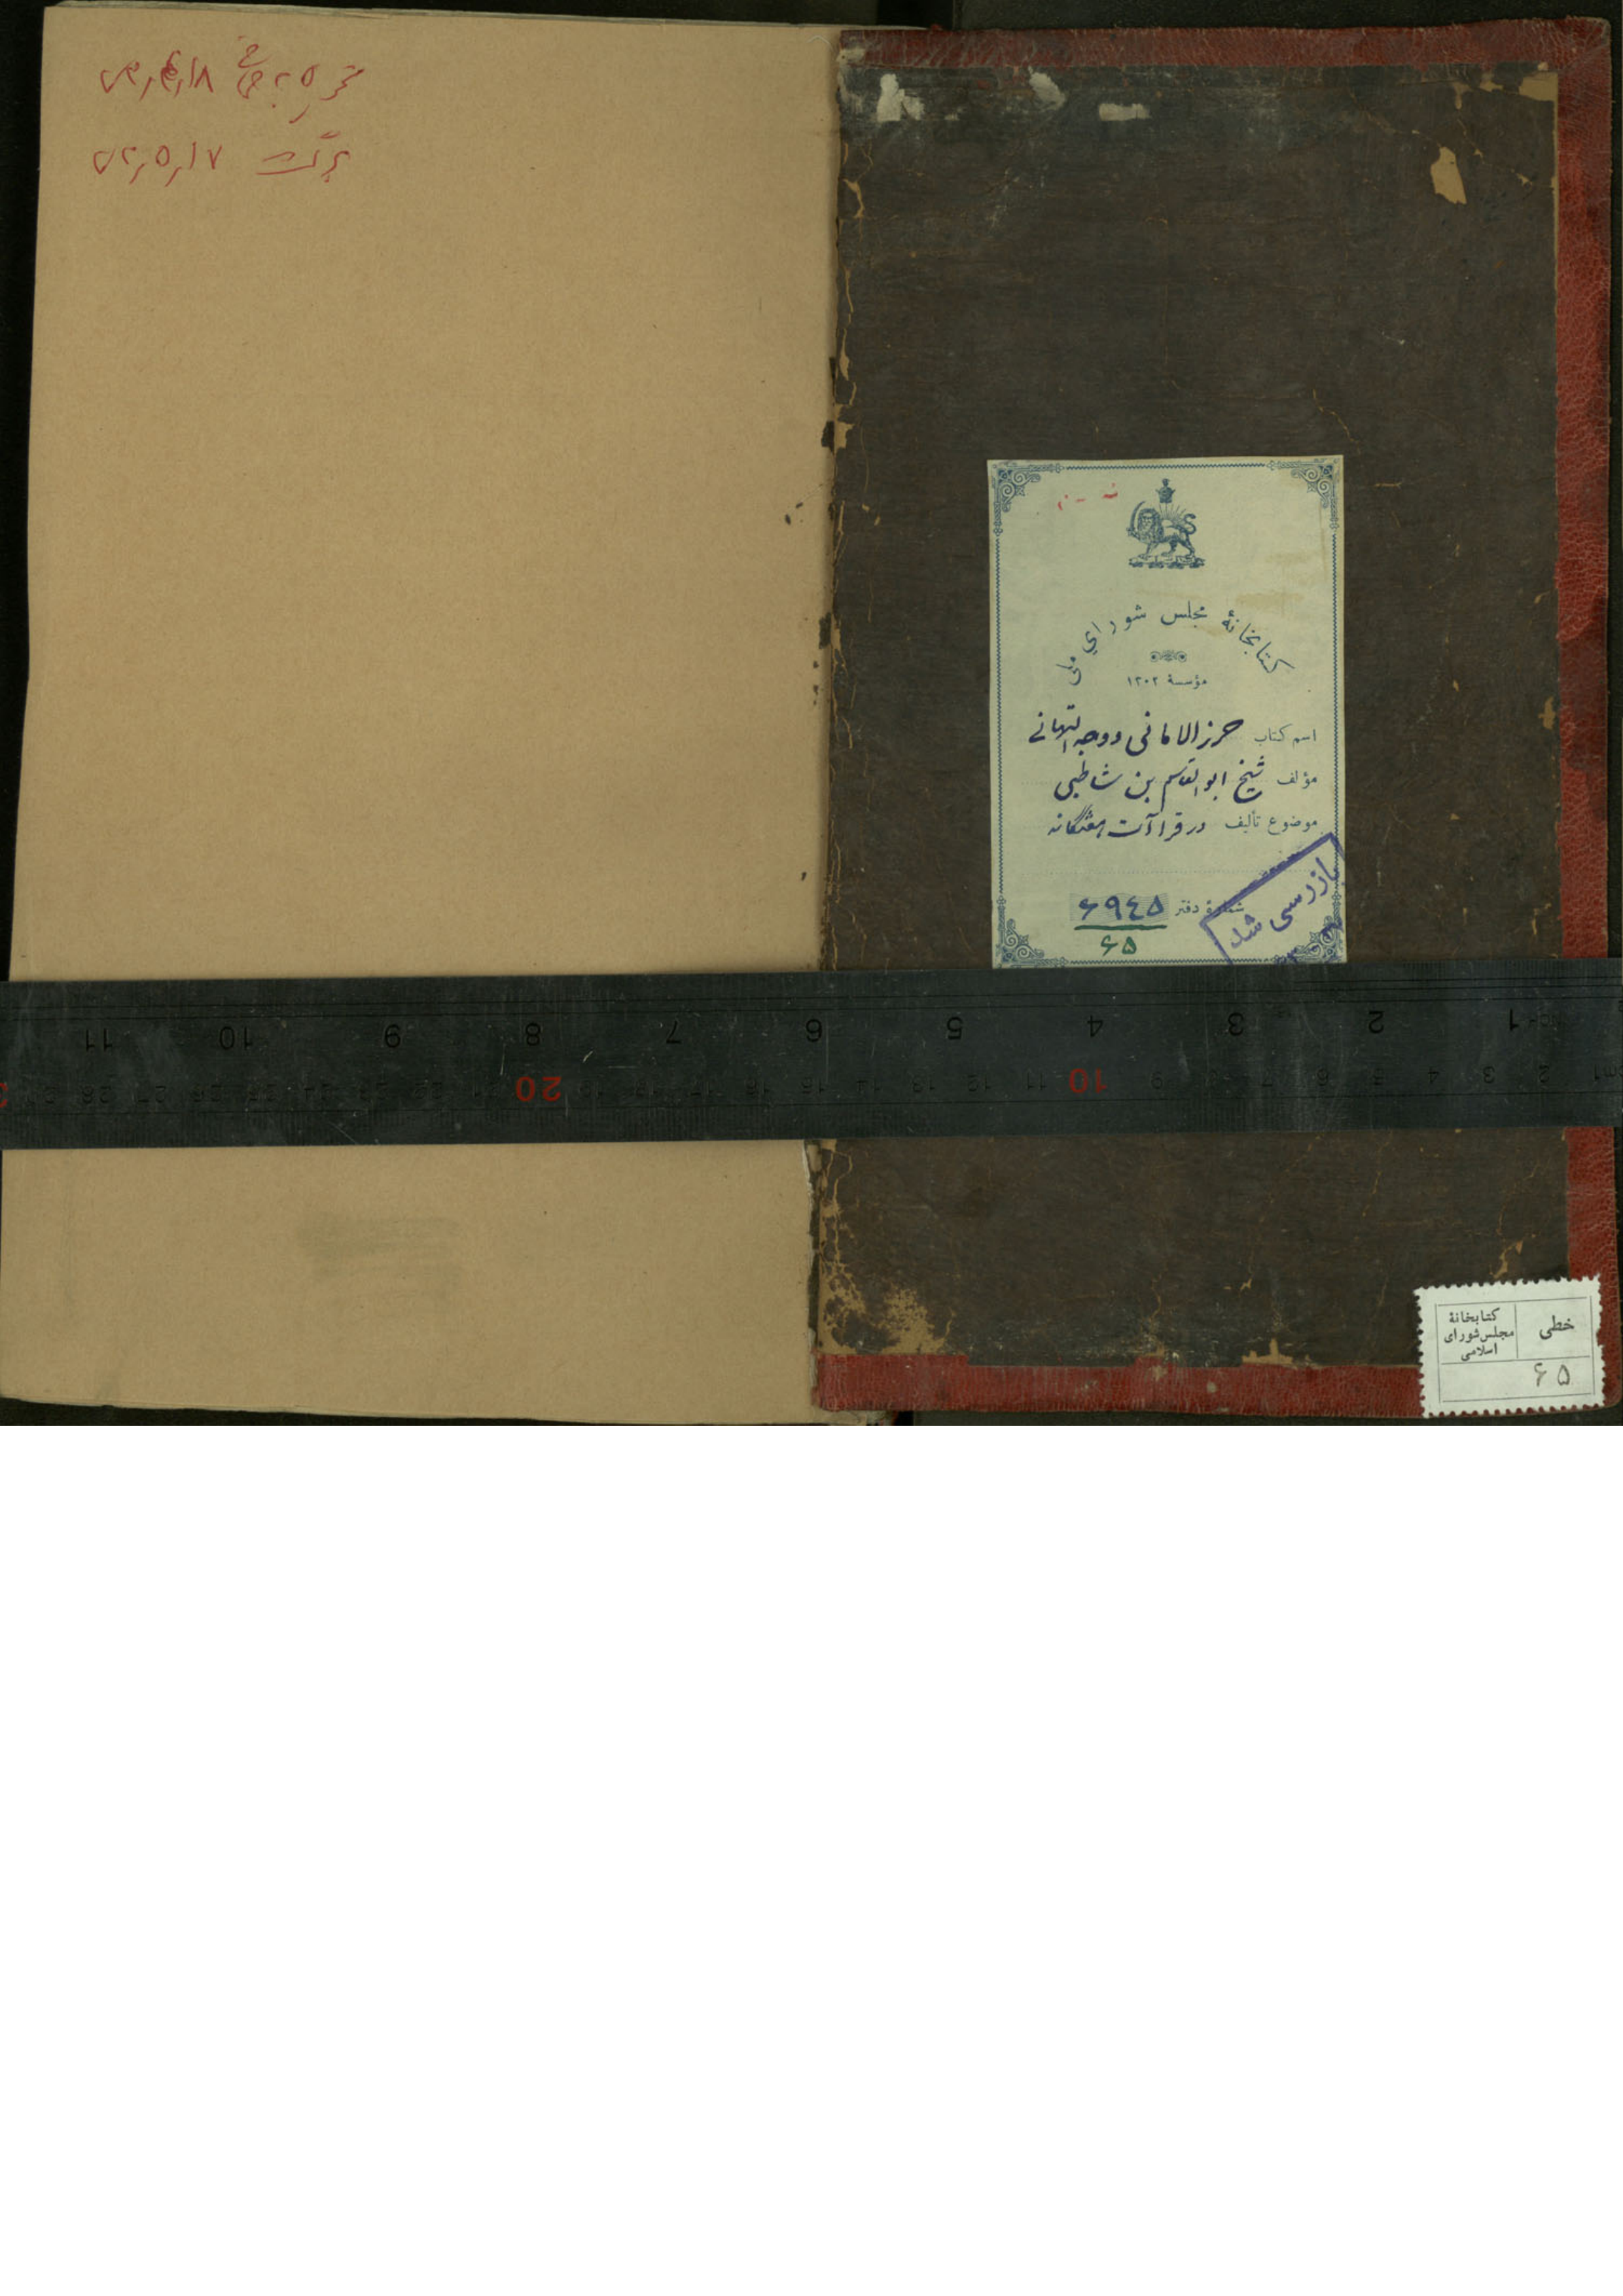 کتابخانهٔ مجلس شورای ملی
مؤسسهٔ ۱۳۰۲
اسم کتاب حرز الامانی و وجه التهانی
مؤلف شیخ ابوالقاسم بن شاطبی
موضوع تألیف در قراآت هفتگانه
شمارهٔ دفتر ۶۹۴۵
۶۵
بازرسی شد
11 10 9 8 7 6 5 4 3 2 1
20 10
خطی
کتابخانهٔ
مجلس شورای
اسلامی
۶۵
۷۲٫۵٫۱۷